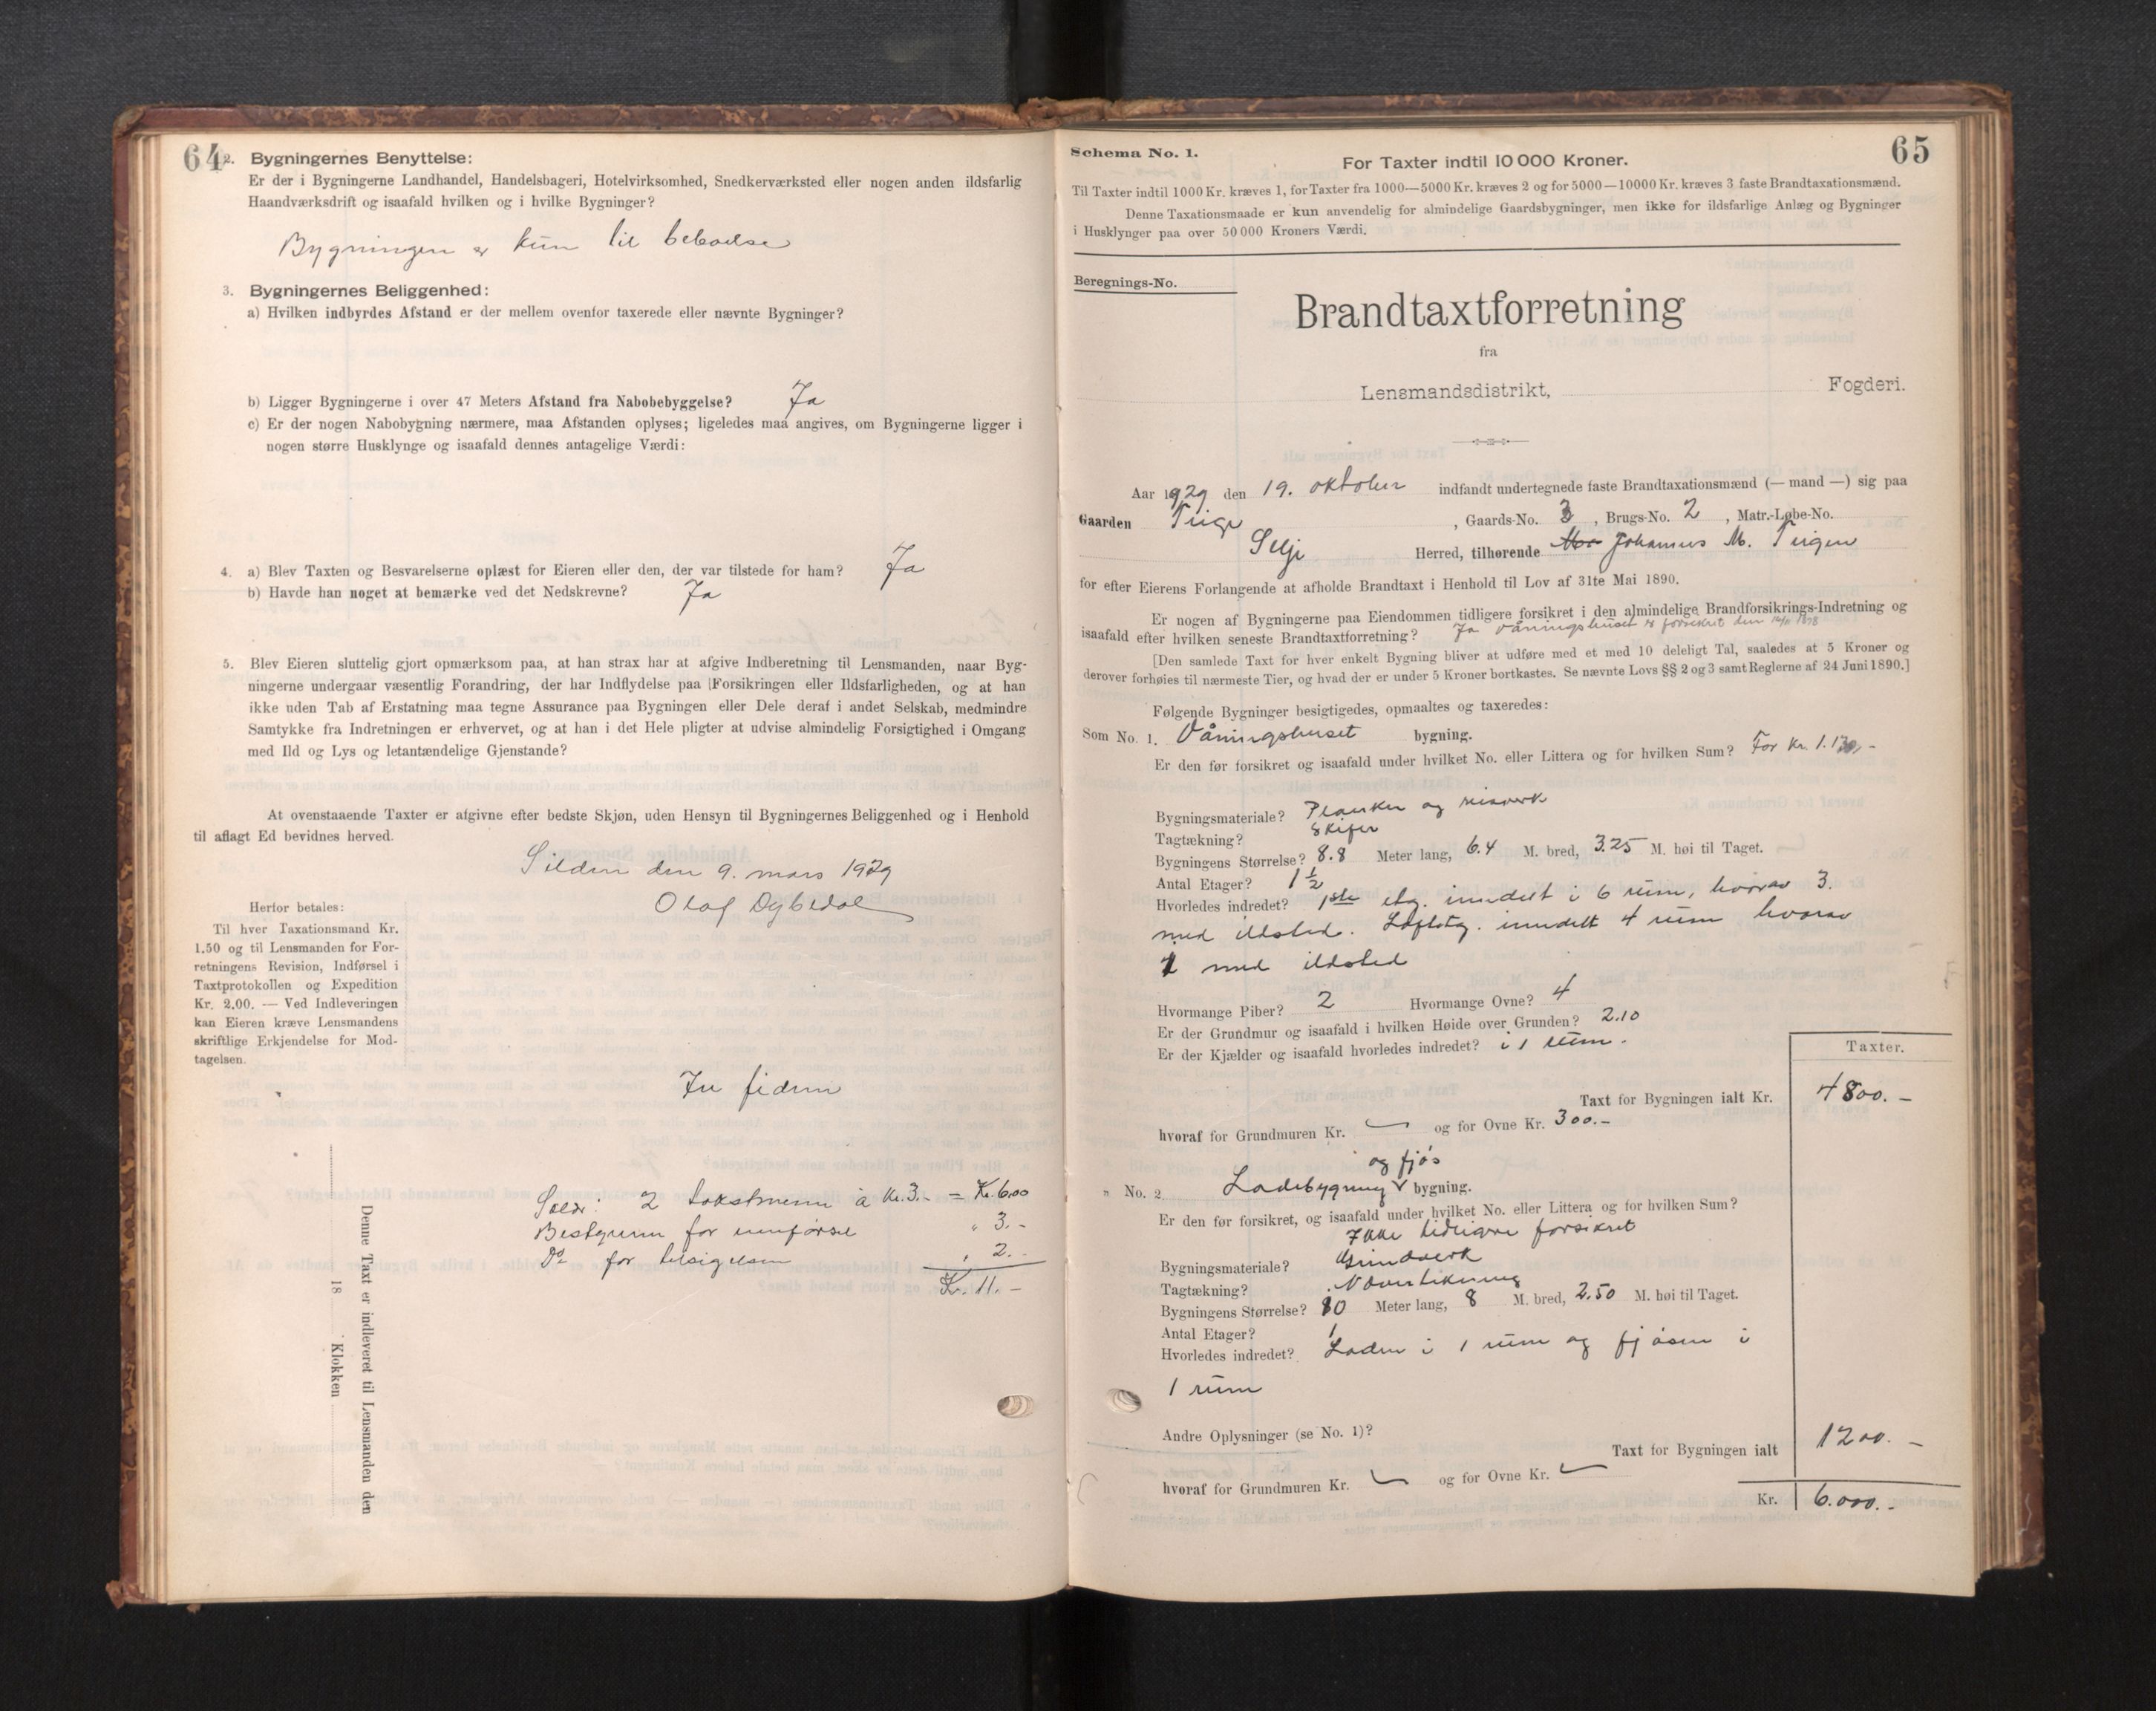 64
2. Bygningernes Benyttelse:
Er der i Bygningerne Landhandel, Handelsbageri, Hotelvirksomhed, Snedkerværksted eller nogen anden ildsfarlig
Haandværksdrift og isaafald hvilken og i hvilke Bygninger?
Bygningen er kun til beboelse
3. Bygningernes Beliggenhed:
a) Hvilken indbyrdes Afstand er der mellem ovenfor taxerede eller nævnte Bygninger?
b) Ligger Bygningerne i over 47 Meters Afstand fra Nabobebyggelse? Ja
c) Er der nogen Nabobygning nærmere, maa Afstanden oplyses; ligeledes maa angives, om Bygningerne ligger i
nogen større Husklynge og isaafald dennes antagelige Værdi:
4. a) Blev Taxten og Besvarelserne oplæst for Eieren eller den, der var tilstede for ham? Ja
b) Havde han noget at bemærke ved det Nedskrevne? Ja
5. Blev Eieren sluttelig gjort opmærksom paa, at han strax har at afgive Indberetning til Lensmanden, naar Byg-
ningerne undergaar væsentlig Forandring, der har Indflydelse paa Forsikringen eller Ildsfarligheden, og at han
ikke uden Tab af Erstatning maa tegne Assurance paa Bygningen eller Dele deraf i andet Selskab, medmindre
Samtykke fra Indretningen er erhvervet, og at han i det Hele pligter at udvise almindelig Forsigtighed i Omgang
med Ild og Lys og letantændelige Gjenstande?
At ovenstaaende Taxter er afgivne efter bedste Skjøn, uden Hensyn til Bygningernes Beliggenhed og i Henhold
til aflagt Ed bevidnes herved.
Silden den 9. mars 1929
Olaf Dybedal
Herfor betales:
Til hver Taxationsmand Kr.
1.50 og til Lensmanden for For-
retningens Revision, Indførsel i
Taxtprotokollen og Expedition
Kr. 2.00. — Ved Indleveringen
kan Eieren kræve Lensmandens
skriftlige Erkjendelse for Mod-
tagelsen.
Denne Taxt er indleveret til Lensmanden den
18 Klokken
2 takstmenn à Kr. 3.- = Kr. 6.00
for innførsel " 3.-
Do for tilsigelsen " 2.-
Kr. 11.-
65
Schema No. 1.
For Taxter indtil 10 000 Kroner.
Til Taxter indtil 1000 Kr. kræves 1, for Taxter fra 1000—5000 Kr. kræves 2 og for 5000—10000 Kr. kræves 3 faste Brandtaxationsmænd.
Denne Taxationsmaade er kun anvendelig for almindelige Gaardsbygninger, men ikke for ildsfarlige Anlæg og Bygninger
i Husklynger paa over 50 000 Kroners Værdi.
Beregnings-No.
Brandtaxtforretning
fra
Lensmandsdistrikt, Fogderi.
Aar 1929 den 19. oktober indfandt undertegnede faste Brandtaxationsmænd (— mand —) sig paa
Gaarden Teige, Gaards-No. 3, Brugs-No. 2, Matr.-Løbe-No.
Selje Herred, tilhørende Johannes M. Teigen
for efter Eierens Forlangende at afholde Brandtaxt i Henhold til Lov af 31te Mai 1890.
Er nogen af Bygningerne paa Eiendommen tidligere forsikret i den almindelige Brandforsikrings-Indretning og
isaafald efter hvilken seneste Brandtaxtforretning? Ja våningshuset er forsikret den
[Den samlede Taxt for hver enkelt Bygning bliver at udføre med et med 10 deleligt Tal, saaledes at 5 Kroner og
derover forhøies til nærmeste Tier, og hvad der er under 5 Kroner bortkastes. Se nævnte Lovs §§ 2 og 3 samt Reglerne af 24 Juni 1890.]
Følgende Bygninger besigtigedes, opmaaltes og taxeredes:
Som No. 1. Våningshuset bygning.
Er den før forsikret og isaafald under hvilket No. eller Littera og for hvilken Sum? For kr. 1.130,-
Bygningsmateriale? Planker og reisverk
Tagtækning? Skifer
Bygningens Størrelse? 8.8 Meter lang, 6.4 M. bred, 3.25 M. høi til Taget.
Antal Etager? 1 1/2
Hvorledes indredet? 1ste etg. inndelt i 6 rum, hvorav 3.
med ildsted. Loftetg. inndelt 4 rum hvorav
1 med ildsted
Hvormange Piber? 2 Hvormange Ovne? 4
Er der Grundmur og isaafald i hvilken Høide over Grunden? 2.10
Er der Kjælder og isaafald hvorledes indredet? i 1 rum.
Taxter.
Taxt for Bygningen ialt Kr. 4800.-
hvoraf for Grundmuren Kr. og for Ovne Kr. 300.-
og fjøs
" No. 2. Ladebygning bygning.
Er den før forsikret, og isaafald under hvilket No. eller Littera og for hvilken Sum?
Ikke tidligere forsikret
Bygningsmateriale? Grindverk
Tagtækning? Nævertekning
Bygningens Størrelse? 10 Meter lang, 8 M. bred, 2.50 M. høi til Taget.
Antal Etager? 1
Hvorledes indredet? Laden i 1 rum og fjøsen i
1 rum
Andre Oplysninger (se No. 1)?
Taxt for Bygningen ialt 1200.-
hvoraf for Grundmuren Kr. og for Ovne Kr.
Kr. 6.000.-